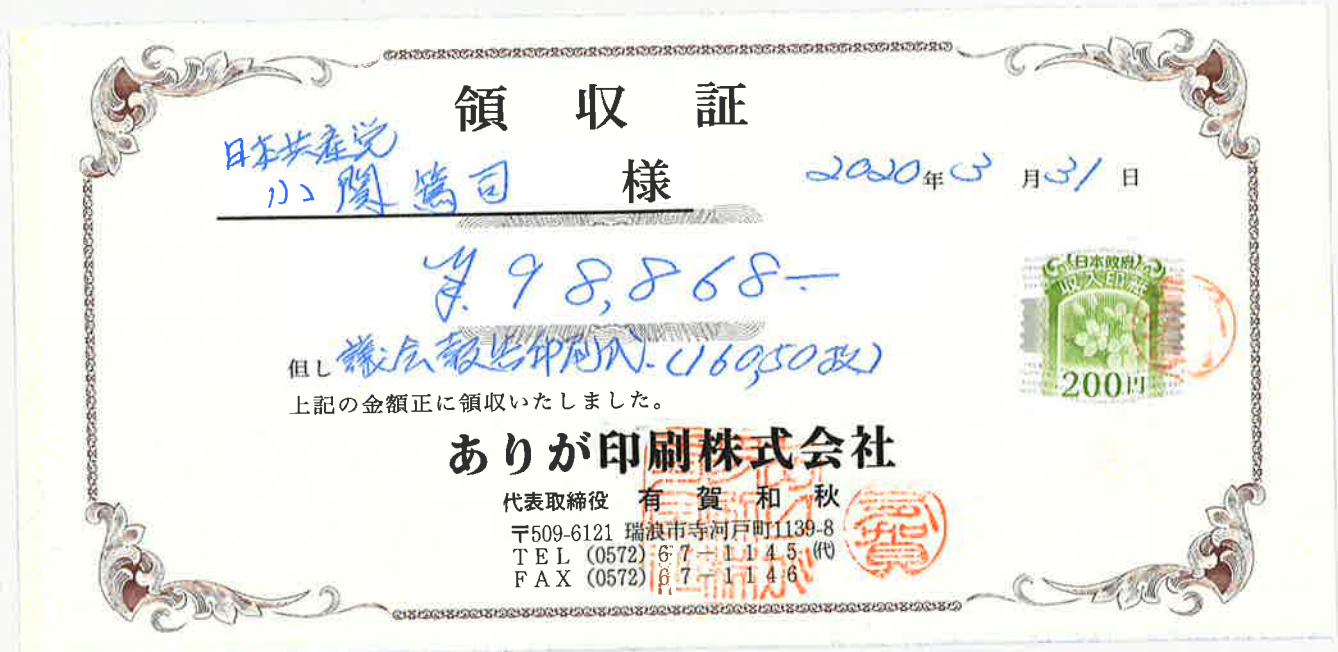 領収証
日本共産党
小関篤司 様
2020年3月31日
¥98,868-
但し 議会報告印刷代.(16050枚)
上記の金額正に領収いたしました。
(日本政府)
収入印紙
200円
ありが印刷株式会社
代表取締役 有賀和秋
〒509-6121 瑞浪市寺河戸町1139-8
TEL (0572) 67-1145 (代)
FAX (0572) 67-1146
有賀